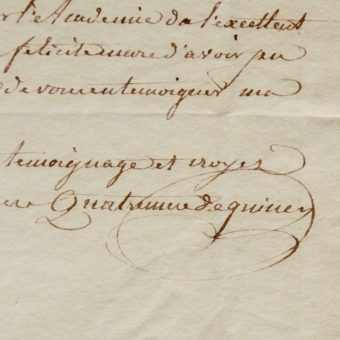 r l'Academie de l'excellent
felicite mare d'avoir pu
de vous en temoigner ma
temoignage et croyes
Quatremere de quincy